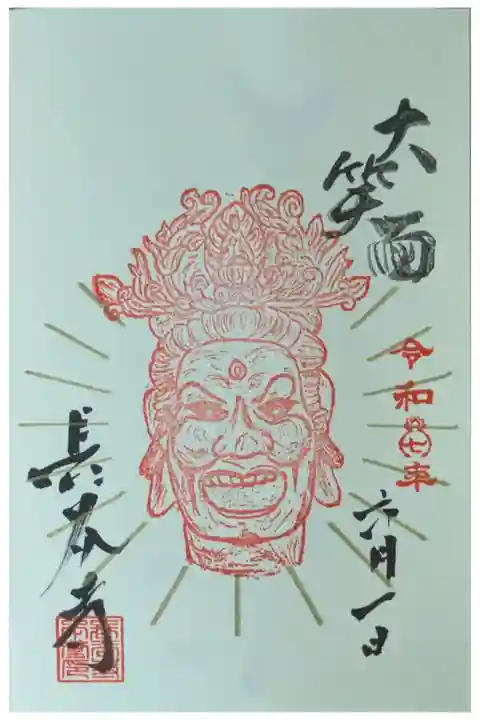 大笑面
令和七年
六月一日
長谷寺